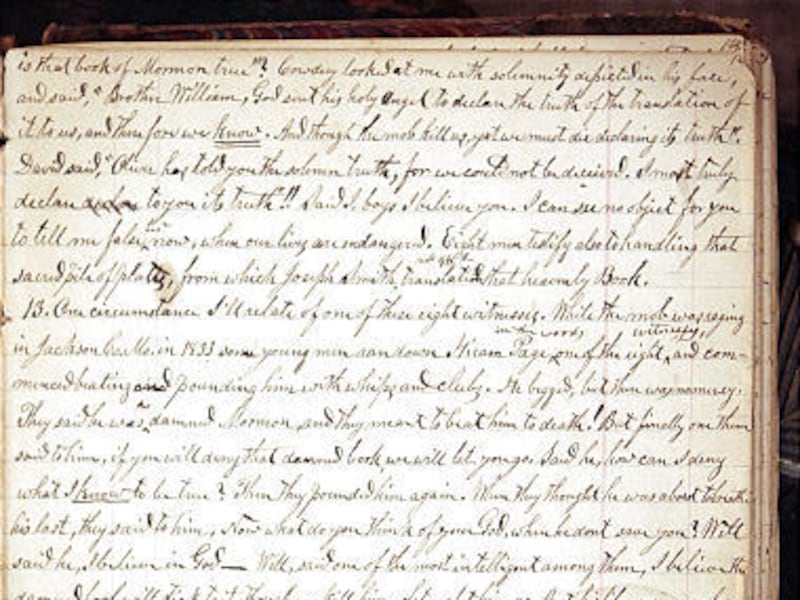 is that book of Mormon true"? Cowdery looked at me with solemnity depicted in his face,
and said, "Brother William, God sent his holy angel to declare the truth of the translation of
it to us, and therefore we know. And though the mob kill us, yet we must die declaring its truth".
David said, "Oliver has told you the solemn truth, for we could not be deceived. I most truly
declare to you its truth"!! Said I, boys I believe you. I can see no object for you
to tell me false now, when our lives are endangered. Eight men testify also to handling that
sacred pile of plates, from which Joseph Smith translated that heavenly Book.
13. One circumstance I'll relate of one of these eight witnesses. While the mob was raging
in Jackson Co. Mo. in 1833 some young men ran down Hiram Page in the woods, one of the eight witnesses, and com-
menced beating and pounding him with whips and clubs. He begged, but there was no mercy.
They said he was a damned Mormon, and they meant to beat him to death! But finally one then
said to him, if you will deny that damned book, we will let you go. Said he, how can I deny
what I know to be true? Then they pounded him again. When they thought he was about to breathe
his last, they said to him, Now what do you think of your God, when he dont save you? Well
said he, I believe in God— Well, said one of the most intelligent among them, I believe the
damned fool will stick to it though we kill him. Let